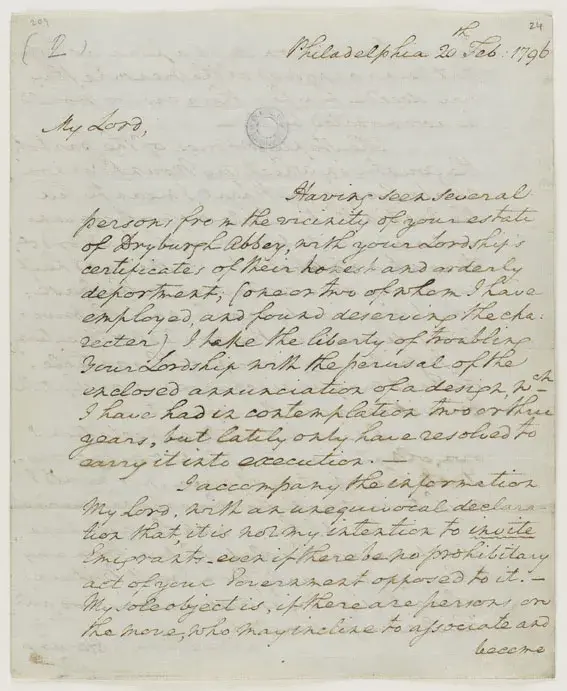 209
24
( 2 )
Philadelphia 20th Feb: 1796
My Lord,
Having seen several
persons from the vicinity of your estate
of Dryburgh Abbey, with your Lordship's
certificates of their honest and orderly
deportment; (one or two of whom I have
employed, and found deserving the cha-
recter) I take the liberty of troubling
Your Lordship with the perusal of the
enclosed annunciation of a design, wch
I have had in contemplation two or three
years, but lately only have resolved to
carry it into execution. —
I accompany the information
My Lord, with an unequivocal declara-
tion that, it is not my intention to invite
Emigrants—even if there be no prohibitary
act of your Government opposed to it. —
My sole object is, if there are persons on
the move, who may incline to associate and
become